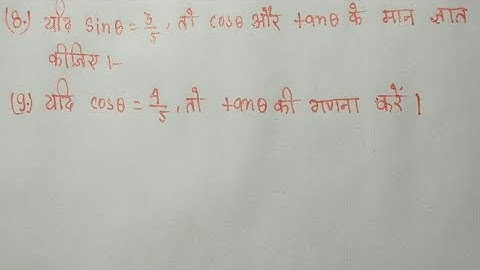 (8.) यदि sinθ = 3/5, तो cosθ और tanθ के मान ज्ञात
कीजिए :-
(9.) यदि cosθ = 4/5, तो tanθ की गणना करें।